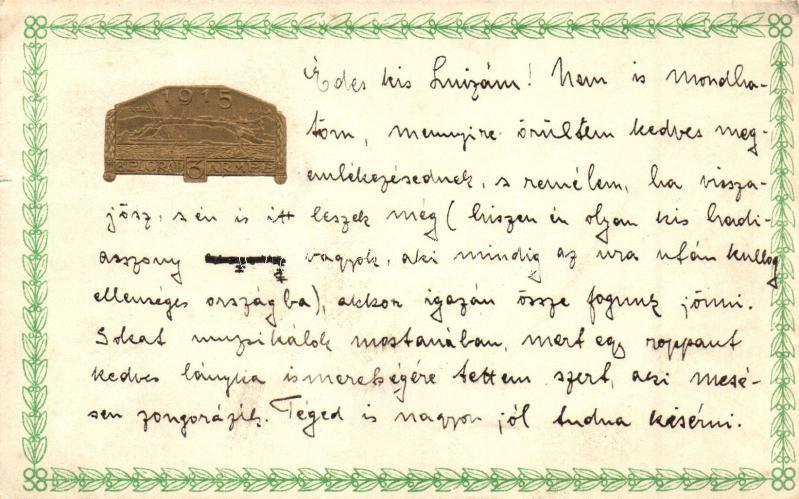 1915
BELGRAD 3 ARMEE
Édes kis Luizám! Nem is mondha-
tom, mennyire örültem kedves meg-
emlékezésednek, s remélem, ha vissza-
jösz, s én is itt leszek még (hiszen én olyan kis hadi-
asszony vagyok, aki mindig az ura után kullog
ellenséges országba), akkor igazán össze fogunk jönni.
Sokat muzsikálok mostanában, mert egy roppant
kedves lányka ismeretségére tettem szert, aki mesé-
sen zongorázik. Téged is nagyon jól tudna kisérni.